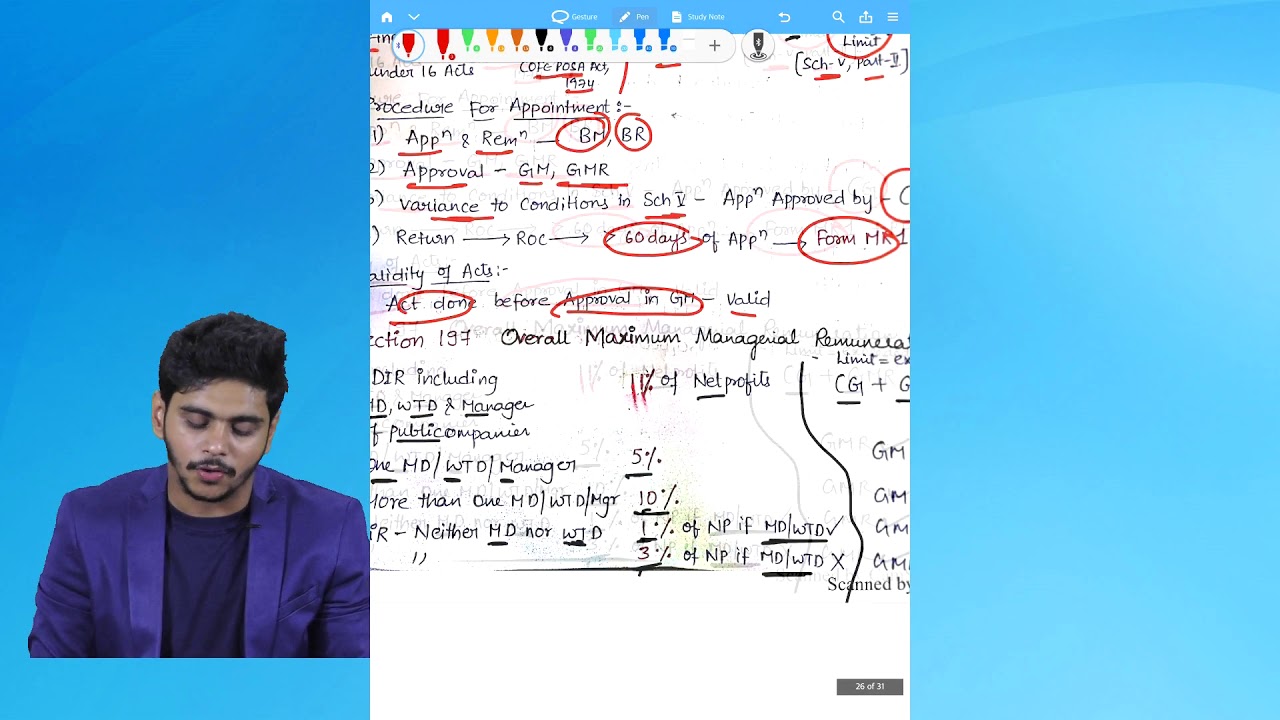 Gesture Pen Study Note
Limit
under 16 Acts COFEPOSA Act, [Sch-V, Part-II]
1974
rocedure For Appointment :-
1) Appⁿ & Remⁿ — BM, BR
2) Approval - GM, GMR
) Variance to Conditions in Sch V - Appⁿ Approved by - C
) Return → ROC → 60 days of Appⁿ → Form MR 1
alidity of Acts:-
Act done before Approval in GM - Valid
ection 197 Overall Maximum Managerial Remunerat
Limit = ex
DIR including 11% of Net profits CG + G
MD, WTD & Manager
f Public companies
One MD/WTD/Manager 5% GM
More than One MD/WTD/Mgr 10% GM
IR - Neither MD nor WTD 1% of NP if MD/WTD ✓ GM
" 3% of NP if MD/WTD X GM
Scanned by
26 of 31